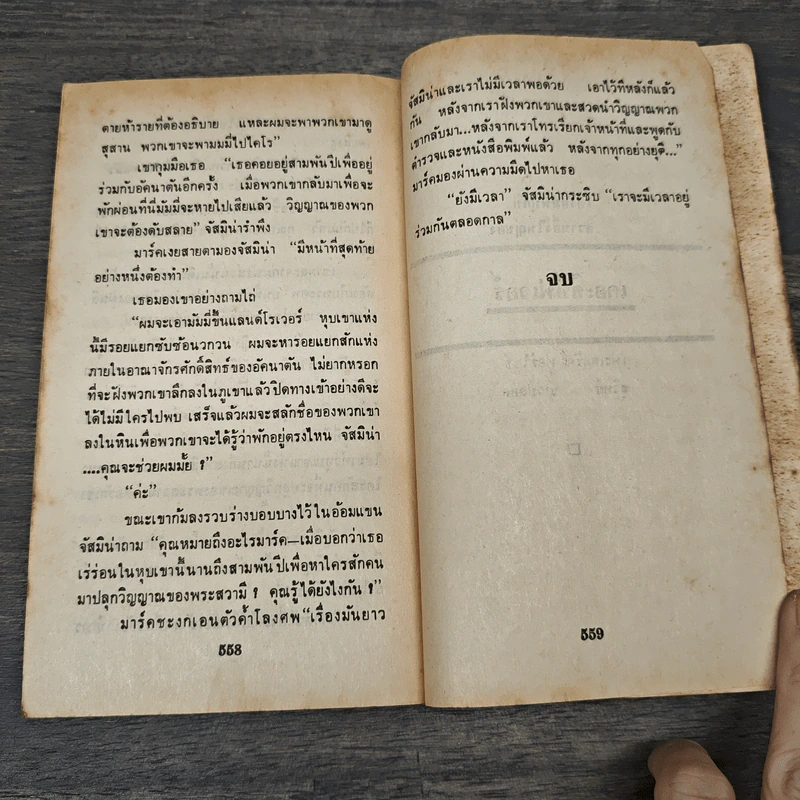 ตายห้ารายที่ต้องอธิบาย แหละผมจะพาพวกเขามาดู
สุสาน พวกเขาจะพามมมี่ไปไคโร”
เขากุมมือเธอ “เธอคอยอยู่สามพันปีเพื่ออยู่
ร่วมกับอัคนาตันอีกครั้ง เมื่อพวกเขากลับมาเพื่อจะ
พักผ่อนที่นี่มัมมี่จะหายไปเสียแล้ว วิญญาณของพวก
เขาจะต้องดับสลาย” จัสมิน่ารำพึง
มาร์คเงยสายตามองจัสมิน่า “มีหน้าที่สุดท้าย
อย่างหนึ่งต้องทำ”
เธอมองเขาอย่างถามไถ่
“ผมจะเอามัมมี่ขึ้นแลนด์โรเวอร์ หุบเขาแห่ง
นี้มีรอยแยกซับซ้อนวกวน ผมจะหารอยแยกสักแห่ง
ภายในอาณาจักรศักดิ์สิทธ์ของอัคนาตัน ไม่ยากหรอก
ที่จะฝังพวกเขาลึกลงในภูเขาแล้วปิดทางเข้าอย่างดีจะ
ได้ไม่มีใครไปพบ เสร็จแล้วผมจะสลักชื่อของพวกเขา
ลงในหินเพื่อพวกเขาจะได้รู้ว่าพักอยู่ตรงไหน จัสมิน่า
....คุณจะช่วยผมมั้ย ?”
“ค่ะ”
ขณะเขาก้มลงรวบร่างบอบบางไว้ในอ้อมแขน
จัสมิน่าถาม “คุณหมายถึงอะไรมาร์ค—เมื่อบอกว่าเธอ
เร่ร่อนในหุบเขานี้นานถึงสามพันปีเพื่อหาใครสักคน
มาปลุกวิญญาณของพระสวามี ? คุณรู้ได้ยังไงกัน ?”
มาร์คชะงกเอนตัวค้ำโลงศพ “เรื่องมันยาว
558
จัสมิน่าและเราไม่มีเวลาพอด้วย เอาไว้ทีหลังก็แล้ว
กัน หลังจากเราฝังพวกเขาและสวดนำวิญญาณพวก
เขากลับมา...หลังจากเราโทรเรียกเจ้าหน้าที่และพูดกับ
ตำรวจและหนังสือพิมพ์แล้ว หลังจากทุกอย่างยุติ...”
มาร์คมองผ่านความมืดไปหาเธอ
“ยังมีเวลา” จัสมิน่ากระซิบ “เราจะมีเวลาอยู่
ร่วมกันตลอดกาล”
จบ
559